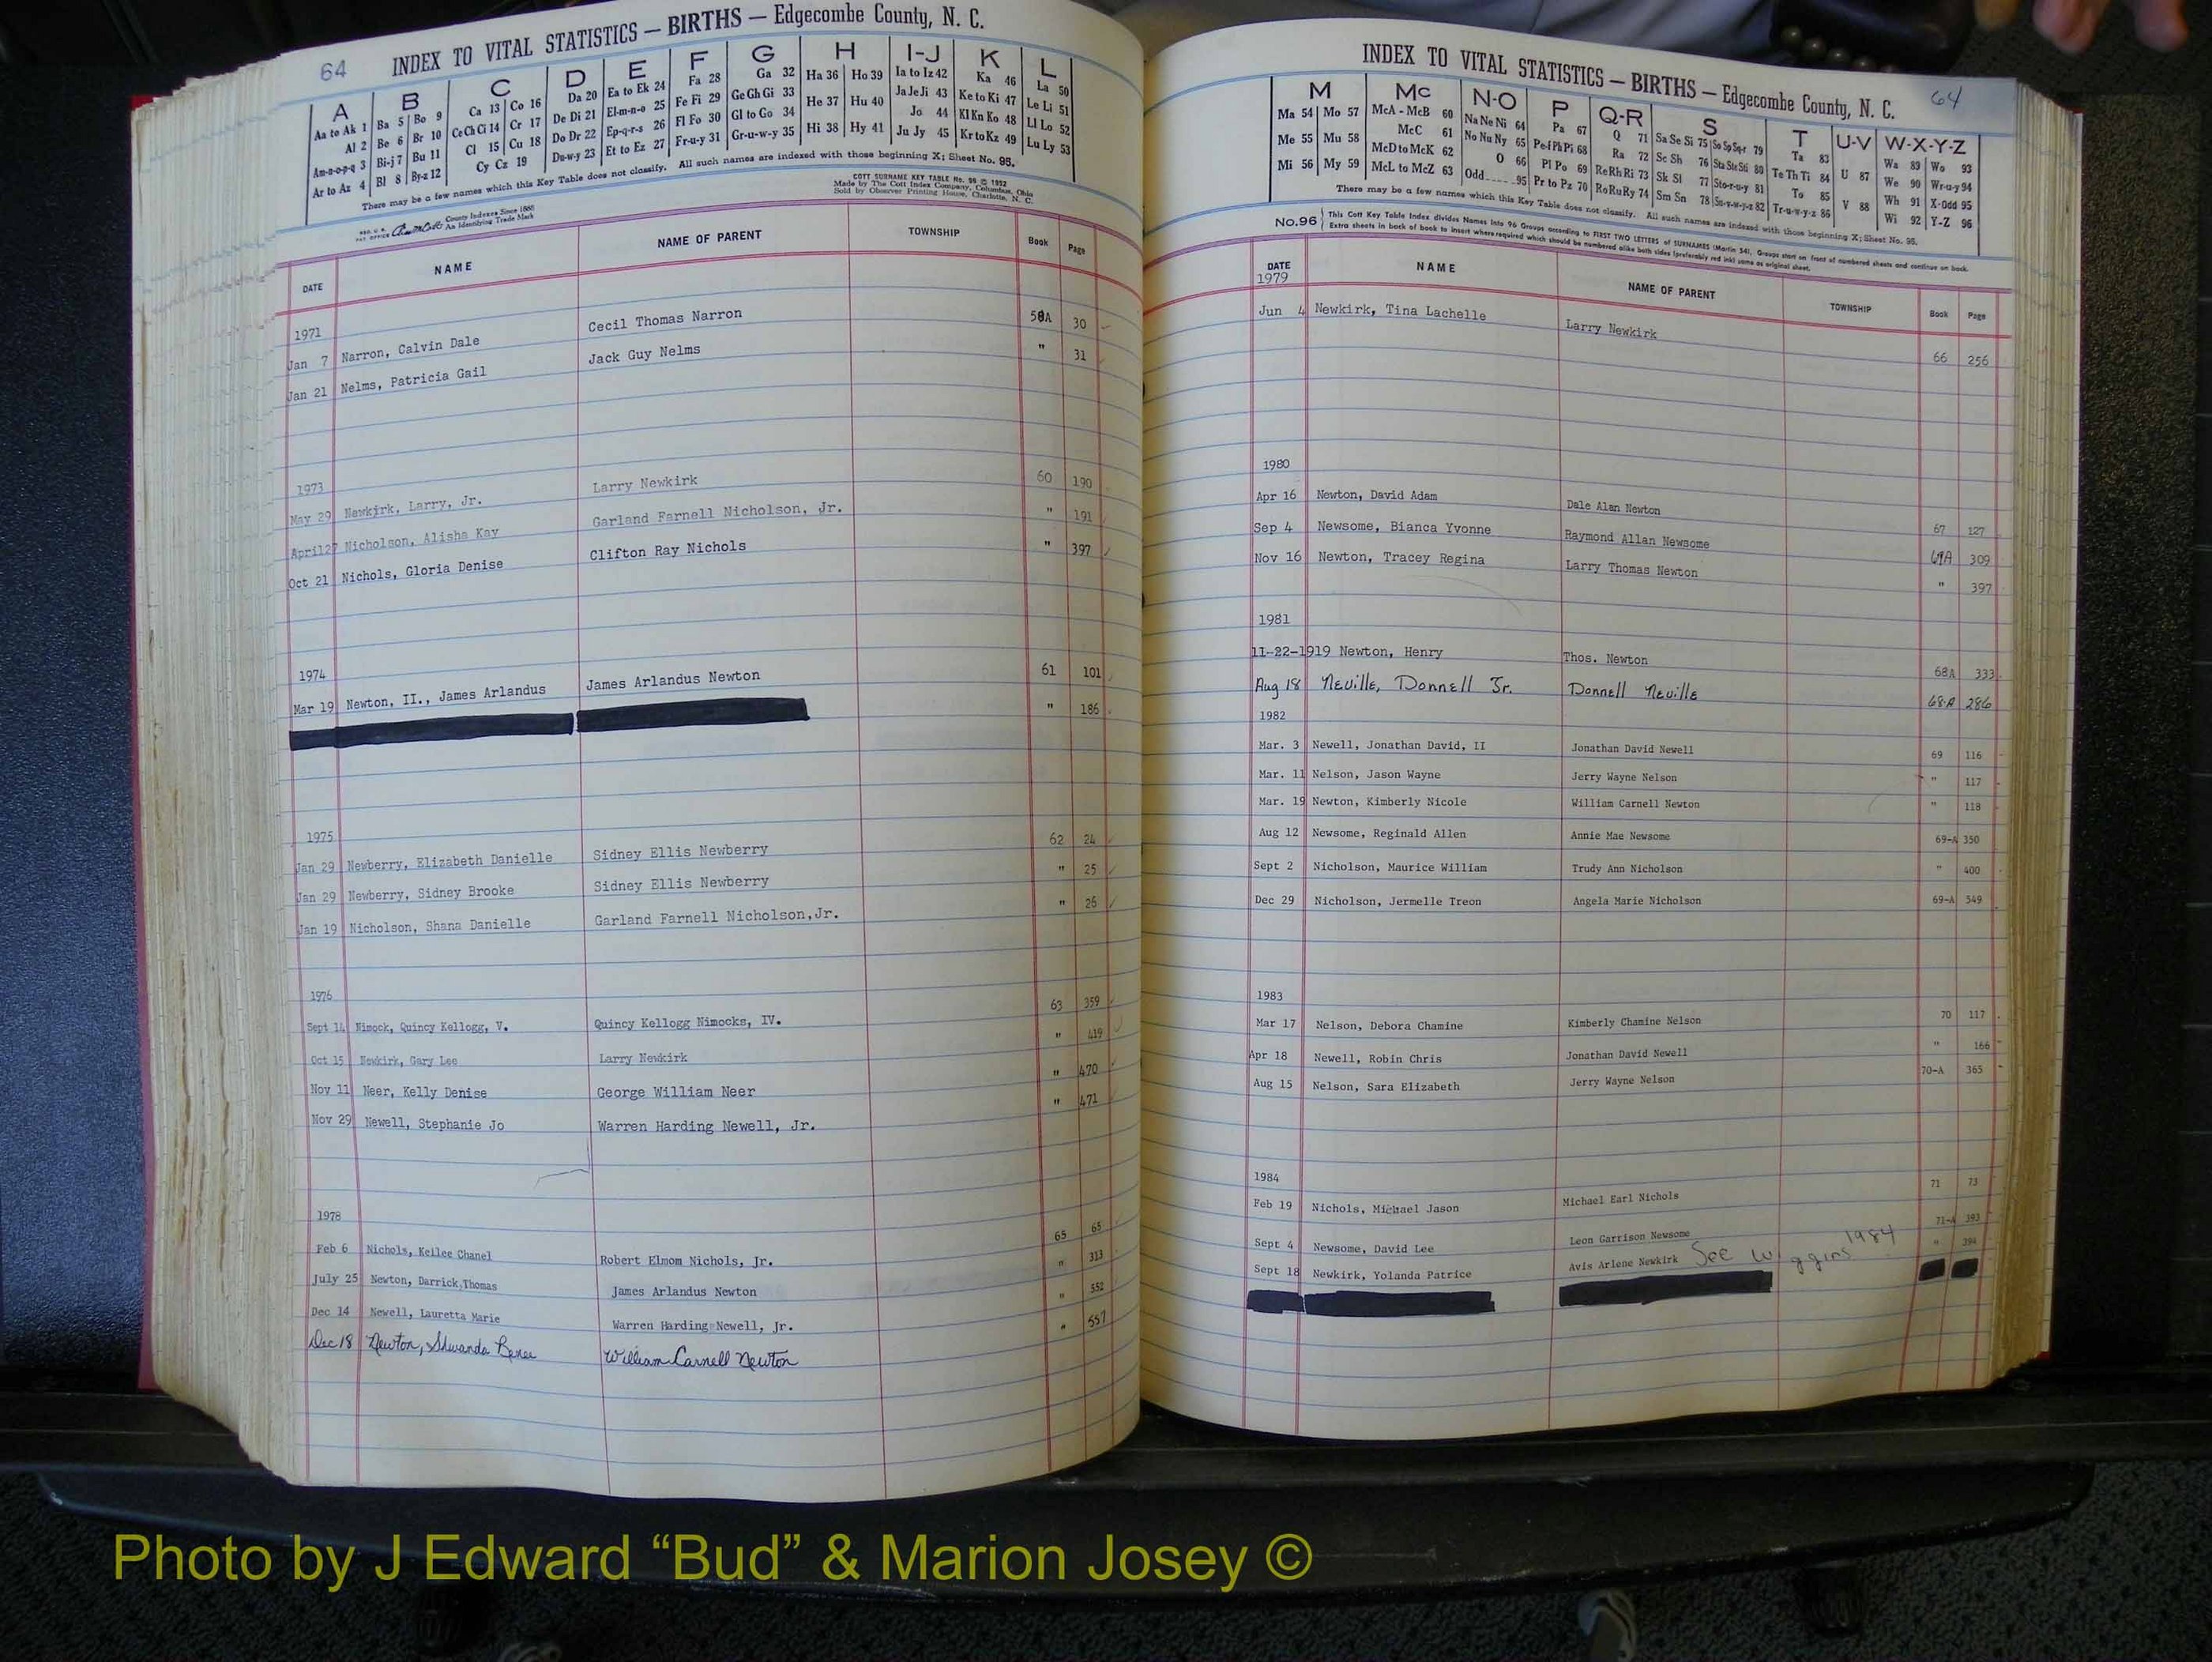 64 INDEX TO VITAL STATISTICS — BIRTHS — Edgecombe County, N. C.
A B C D E F G H I-J K L
Aa to Ak 1 Ba 5 Bo 9 Ca 13 Co 16 Da 20 Ea to Ek 24 Fa 28 Ga 32 Ha 36 Ho 39 Ia to Iz 42 Ka 46 La 50
Al 2 Be 6 Br 10 Ce Ch Ci 14 Cr 17 De Di 21 El-m-n-o 25 Fe Fi 29 Ge Gh Gi 33 He 37 Hu 40 Ja Je Ji 43 Ke to Ki 47 Le Li 51
Am-n-o-p-q 3 Bi-j 7 Bu 11 Cl 15 Cu 18 Do Dr 22 Ep-q-r-s 26 Fl Fo 30 Gl to Go 34 Hi 38 Hy 41 Jo 44 Kl Kn Ko 48 Ll Lo 52
Ar to Az 4 Bl 8 By-z 12 Cy Cz 19 Du-w-y 23 Et to Ez 27 Fr-u-y 31 Gr-u-w-y 35 Ju Jy 45 Kr to Kz 49 Lu Ly 53
There may be a few names which this Key Table does not classify. All such names are indexed with those beginning X; Sheet No. 95.
County Indexes Since 1888
An Identifying Trade Mark
COTT SURNAME KEY TABLE No. 96 © 1952
Made by The Cott Index Company, Columbus, Ohio
Sold by Observer Printing House, Charlotte, N. C.
DATE NAME NAME OF PARENT TOWNSHIP Book Page
1971
Jan 7 Narron, Calvin Dale Cecil Thomas Narron 30
Jan 21 Nelms, Patricia Gail Jack Guy Nelms " 31
1973
May 29 Newkirk, Larry, Jr. Larry Newkirk 60 190
April27 Nicholson, Alisha Kay Garland Farnell Nicholson, Jr. " 191
Oct 21 Nichols, Gloria Denise Clifton Ray Nichols " 397
1974
Mar 19 Newton, II., James Arlandus James Arlandus Newton 61 101
" 186
1975
Jan 29 Newberry, Elizabeth Danielle Sidney Ellis Newberry 62 24
Jan 29 Newberry, Sidney Brooke Sidney Ellis Newberry " 25
Jan 19 Nicholson, Shana Danielle Garland Farnell Nicholson,Jr. " 26
1976
Sept 14 Nimock, Quincy Kellogg, V. Quincy Kellogg Nimocks, IV. 63 359
Oct 15 Newkirk, Gary Lee Larry Newkirk " 419
Nov 11 Neer, Kelly Denise George William Neer " 470
Nov 29 Newell, Stephanie Jo Warren Harding Newell, Jr. " 471
1978
Feb 6 Nichols, Keilee Chanel Robert Elmom Nichols, Jr. 65 65
July 25 Newton, Darrick Thomas James Arlandus Newton " 313
Dec 14 Newell, Lauretta Marie Warren Harding Newell, Jr. " 552
Dec 18 Newton, Shwanda Renee William Carnell Newton " 557
INDEX TO VITAL STATISTICS — BIRTHS — Edgecombe County, N. C. 64
M Mc N-O P Q-R S T U-V W-X-Y-Z
Ma 54 Mo 57 McA - McB 60 Na Ne Ni 64 Pa 67 Q 71 Sa Se Si 75 So Sp Sq-r 79 Ta 83 U 87 Wa 89 Wo 93
Me 55 Mu 58 McC 61 No Nu Ny 65 Pe-f Ph Pi 68 Ra 72 Sc Sh 76 Sta Ste Sti 80 Te Th Ti 84 V 88 We 90 Wr-u-y 94
Mi 56 My 59 McD to McK 62 O 66 Pl Po 69 Re Rh Ri 73 Sk Sl 77 Sto-r-u-y 81 To 85 Wh 91 X-Odd 95
McL to McZ 63 Odd 95 Pr to Pz 70 Ro Ru Ry 74 Sm Sn 78 Su-v-w-y-z 82 Tr-u-w-y-z 86 Wi 92 Y-Z 96
There may be a few names which this Key Table does not classify. All such names are indexed with those beginning X; Sheet No. 95.
No.96 This Cott Key Table Index divides Names into 96 Groups according to FIRST TWO LETTERS of SURNAMES (Martin 54). Groups start on front of numbered sheets and continue on back.
Extra sheets in back of book to insert where required which should be numbered alike both sides (preferably red ink) same as original sheet.
DATE NAME NAME OF PARENT TOWNSHIP Book Page
1979
Jun 4 Newkirk, Tina Lachelle Larry Newkirk 66 256
1980
Apr 16 Newton, David Adam Dale Alan Newton 67 127
Sep 4 Newsome, Bianca Yvonne Raymond Allan Newsome 309
Nov 16 Newton, Tracey Regina Larry Thomas Newton " 397
1981
11-22-1919 Newton, Henry Thos. Newton 68A 333
Aug 18 Neville, Donnell Jr. Donnell Neville 68-A 286
1982
Mar. 3 Newell, Jonathan David, II Jonathan David Newell 69 116
Mar. 11 Nelson, Jason Wayne Jerry Wayne Nelson " 117
Mar. 19 Newton, Kimberly Nicole William Carnell Newton " 118
Aug 12 Newsome, Reginald Allen Annie Mae Newsome 69-A 350
Sept 2 Nicholson, Maurice William Trudy Ann Nicholson " 400
Dec 29 Nicholson, Jermelle Treon Angela Marie Nicholson 69-A 549
1983
Mar 17 Nelson, Debora Chamine Kimberly Chamine Nelson 70 117
Apr 18 Newell, Robin Chris Jonathan David Newell " 166
Aug 15 Nelson, Sara Elizabeth Jerry Wayne Nelson 70-A 365
1984
Feb 19 Nichols, Michael Jason Michael Earl Nichols 71 73
Sept 4 Newsome, David Lee Leon Garrison Newsome 71-A 393
Sept 18 Newkirk, Yolanda Patrice Avis Arlene Newkirk See Wiggins 1984 " 394
Photo by J Edward “Bud” & Marion Josey ©